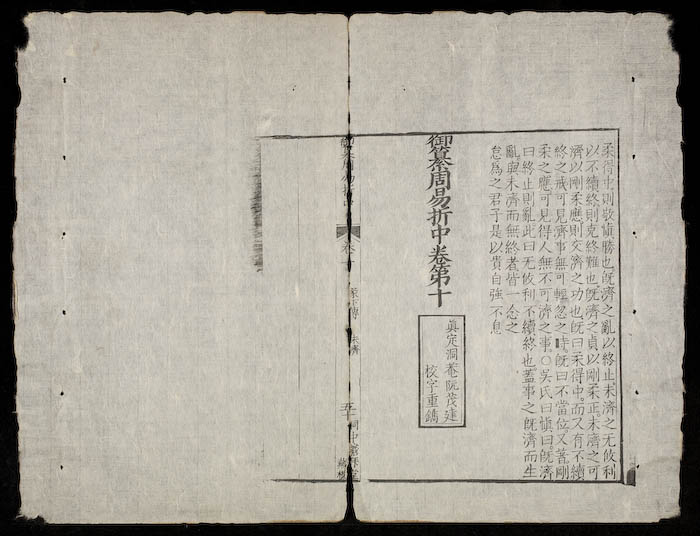 柔得中則敬愼勝也旣濟之亂以終止未濟之无攸利
以不續終則克終難也旣濟之貞以剛柔正未濟之可
濟以剛柔應則交濟之功也旣曰柔得中而又有不續
終之戒可見濟事無可輕忽之時旣曰不當位又著剛
柔之應可見得人無不可濟之事○吳氏曰愼曰旣濟
曰終止則亂此曰无攸利不續終也蓋事之旣濟而生
亂與未濟而無終者皆一念之
怠爲之君子是以貴自強不息
御纂周易折中卷第十
眞定洞菴阮茂建
校字重鐫
御纂周易折中
卷十
彖下傳
未濟
五十